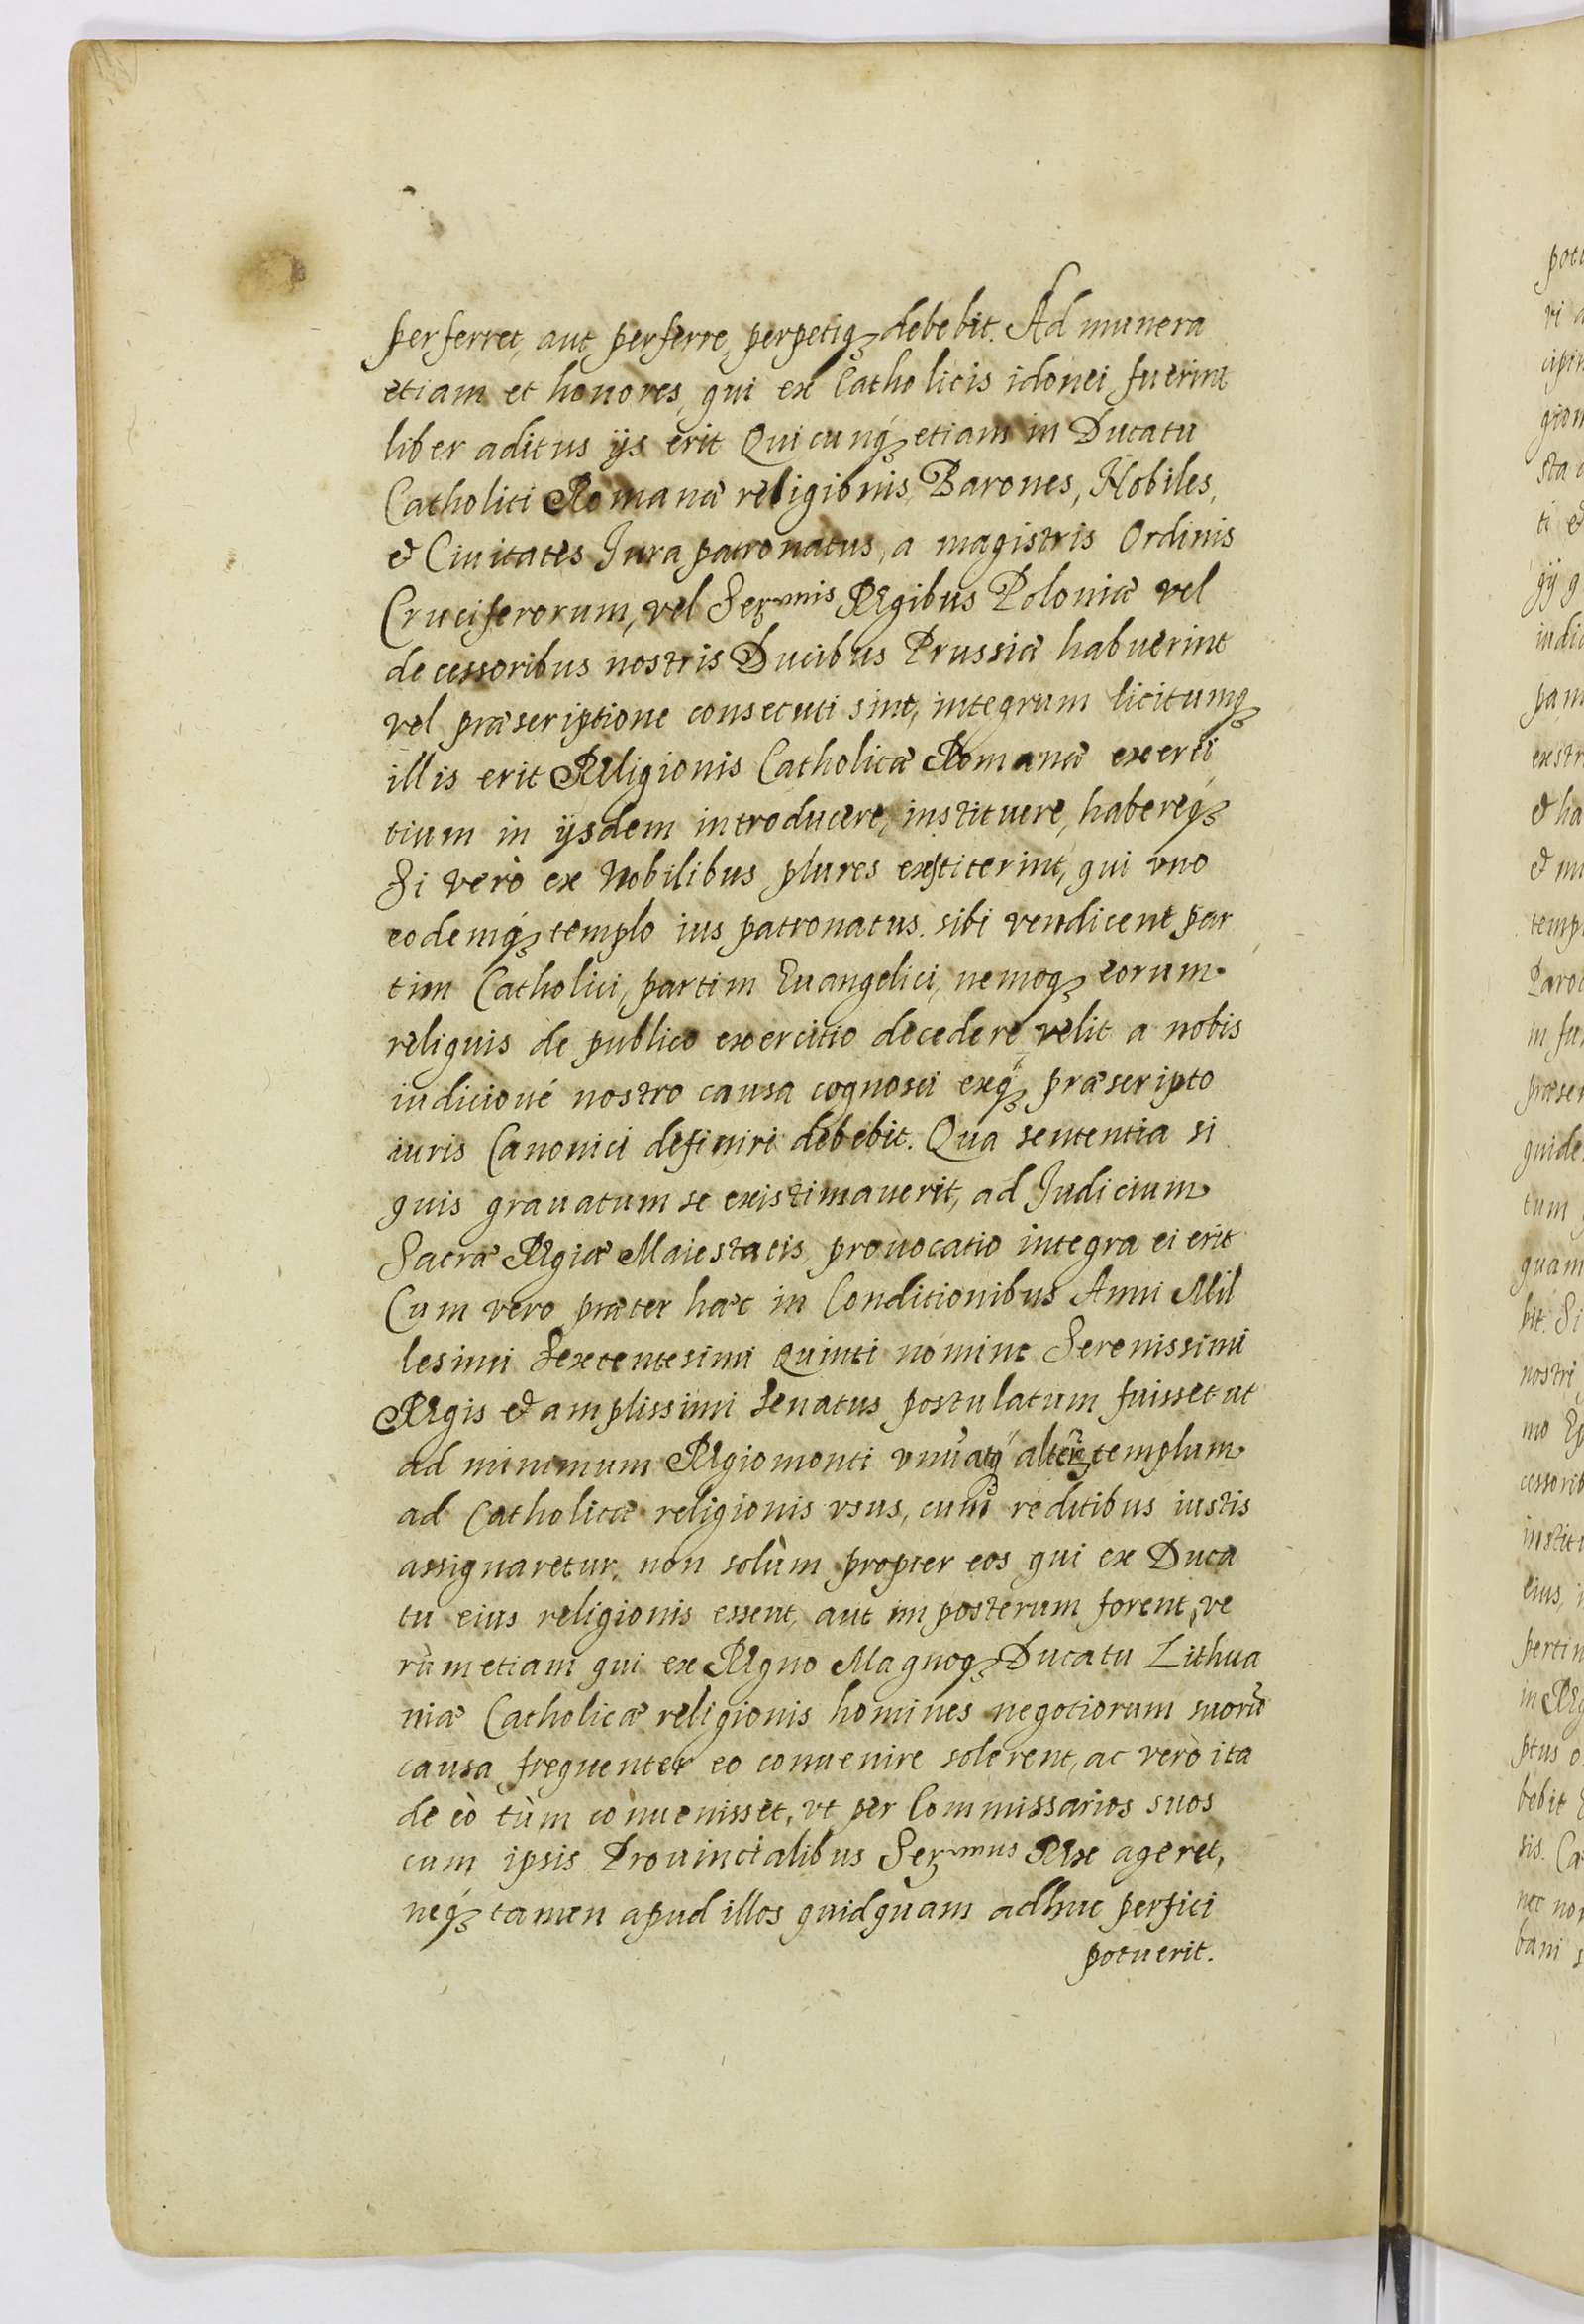 perferret, aut perferre, perpetiq; debebit. Ad munera
etiam et honores, qui ex Catholicis idonei fuerint
liber aditus ijs erit Quicunq; etiam in Ducatu
Catholici Romanæ religionis Barones, Nobiles,
& Ciuitates Jura patronatus, a magistris Ordinis
Cruciferorum, vel Serᵐⁱˢ Regibus Poloniæ vel
decessoribus nostris Ducibus Prussiæ habuerint
vel præscriptione consecuti sint, integrum licitumq;
illis erit Religionis Catholicæ Romanæ exerci
tium in ijsdem introducere, instituere, habereq;
Si verò ex Nobilibus plures exstiterint, qui vno
eodemq; templo ius patronatus sibi vendicent par
tim Catholici, partim Euangelici, nemoq; eorum
reliquis de publico exercitio decedere velit a nobis
iudicioué nostro causa cognosci exq; præscripto
iuris Canonici definiri debebit. Qua sententia si
quis grauatum se existimauerit, ad Judicium
Sacræ Regiæ Maiestatis prouocatio integra ei erit
Cum vero præter hæc in Conditionibus Anni Mil
lesimi Sexcentesimi Quinti nomine Serenissimi
Regis & amplissimi Senatus postulatum fuisset ut
ad minimum Regiomonti vnū atq; alterū templum
ad Catholicæ religionis vsus, cum reditibus iustis
assignaretur, non solùm propter eos qui ex Duca
tu eius religionis essent, aut imposterum forent, ve
rùm etiam qui ex Regno Magnoq; Ducatu Lithua
niæ Catholicæ religionis homines negotiorum suorū
causa frequenter eo conuenire solerent, ac verò ita
de eò tùm conuenisset, vt per Commissarios suos
cum ipsis Prouincialibus Serᵐᵘˢ Rex ageret,
neq; tamen apud illos quidquam adhuc perfici
potuerit.